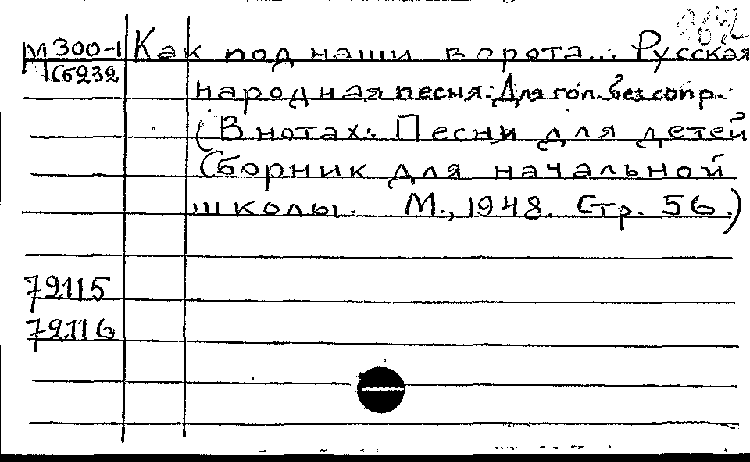 М300-1 Как под наши ворота... Русская
Сб232 народная песня. Для гол. без сопр.
(В нотах: Песни для детей
Сборник для начальной
школы. М., 1948. Стр. 56.)
79115
79116